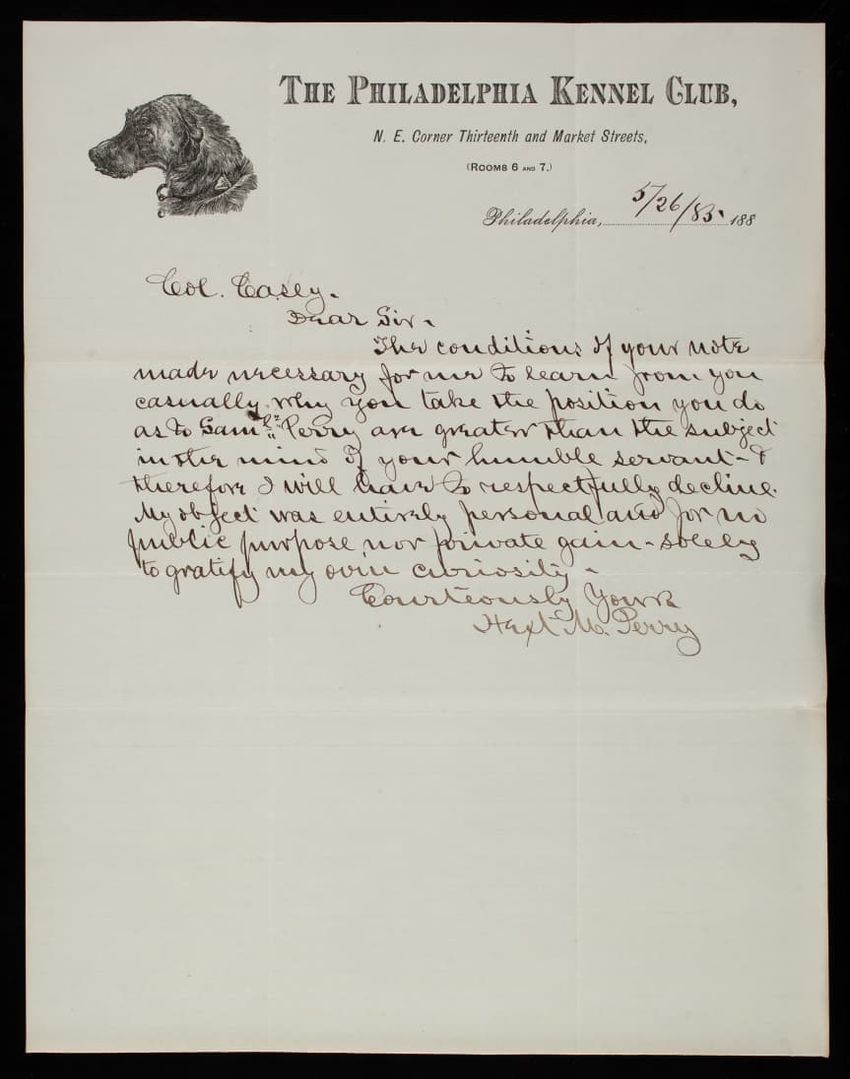 THE PHILADELPHIA KENNEL CLUB,
N. E. Corner Thirteenth and Market Streets,
(ROOMS 6 AND 7.)
Philadelphia, 5/26/85. 188
Col. Casey.
Dear Sir.
The conditions of your note
made necessary for me to learn from you
casually, why you take the position you do
as to Saml. Perry are greater than the subject
in the mind of your humble servant - &
therefore I will have to respectfully decline.
My object was entirely personal and for no
public purpose nor private gain - solely
to gratify my own curiosity -
Courteously Yours
Hext M. Perry